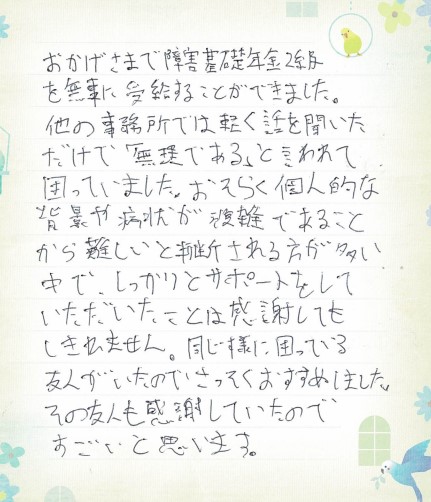 おかげさまで障害基礎年金2級
を無事に受給することができました。
他の事務所では軽く話を聞いた
だけで「無理である」と言われて
困っていました。おそらく個人的な
背景や病状が複雑であること
から難しいと判断される方が多い
中で、しっかりとサポートをして
いただいたことは感謝しても
しきれません。同じ様に困っている
友人がいたのでさっそくおすすめしました。
その友人も感謝していたので
すごいと思います。